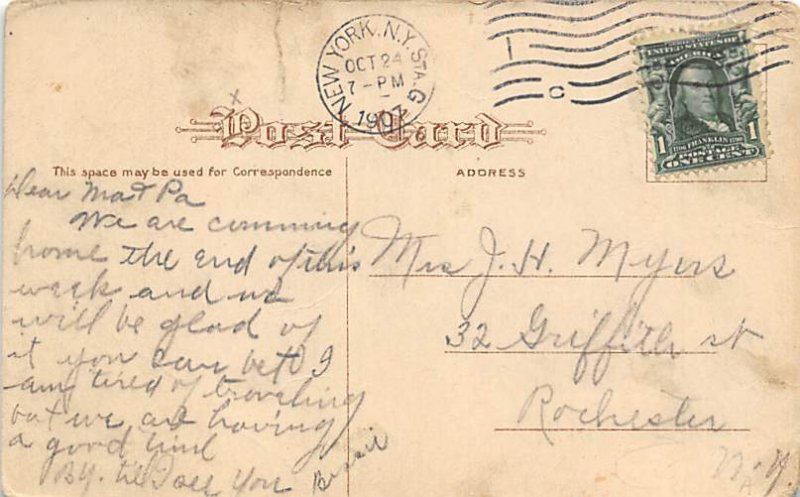 NEW YORK, N.Y. STA. G
OCT 24
7 - PM
1907
1 C
UNITED STATES OF
AMERICA
1706 FRANKLIN 1790
POSTAGE
1 ONE CENT
Post Card
This space may be used for Correspondence
ADDRESS
Dear Ma & Pa
We are comming
home the end of this
week and we
will be glad of
it you can bet I
am tired of traveling
but we are having
a good time
By. til I see you Bessie
Mrs J. H. Myers
32 Griffith st
Rochester
N.Y.